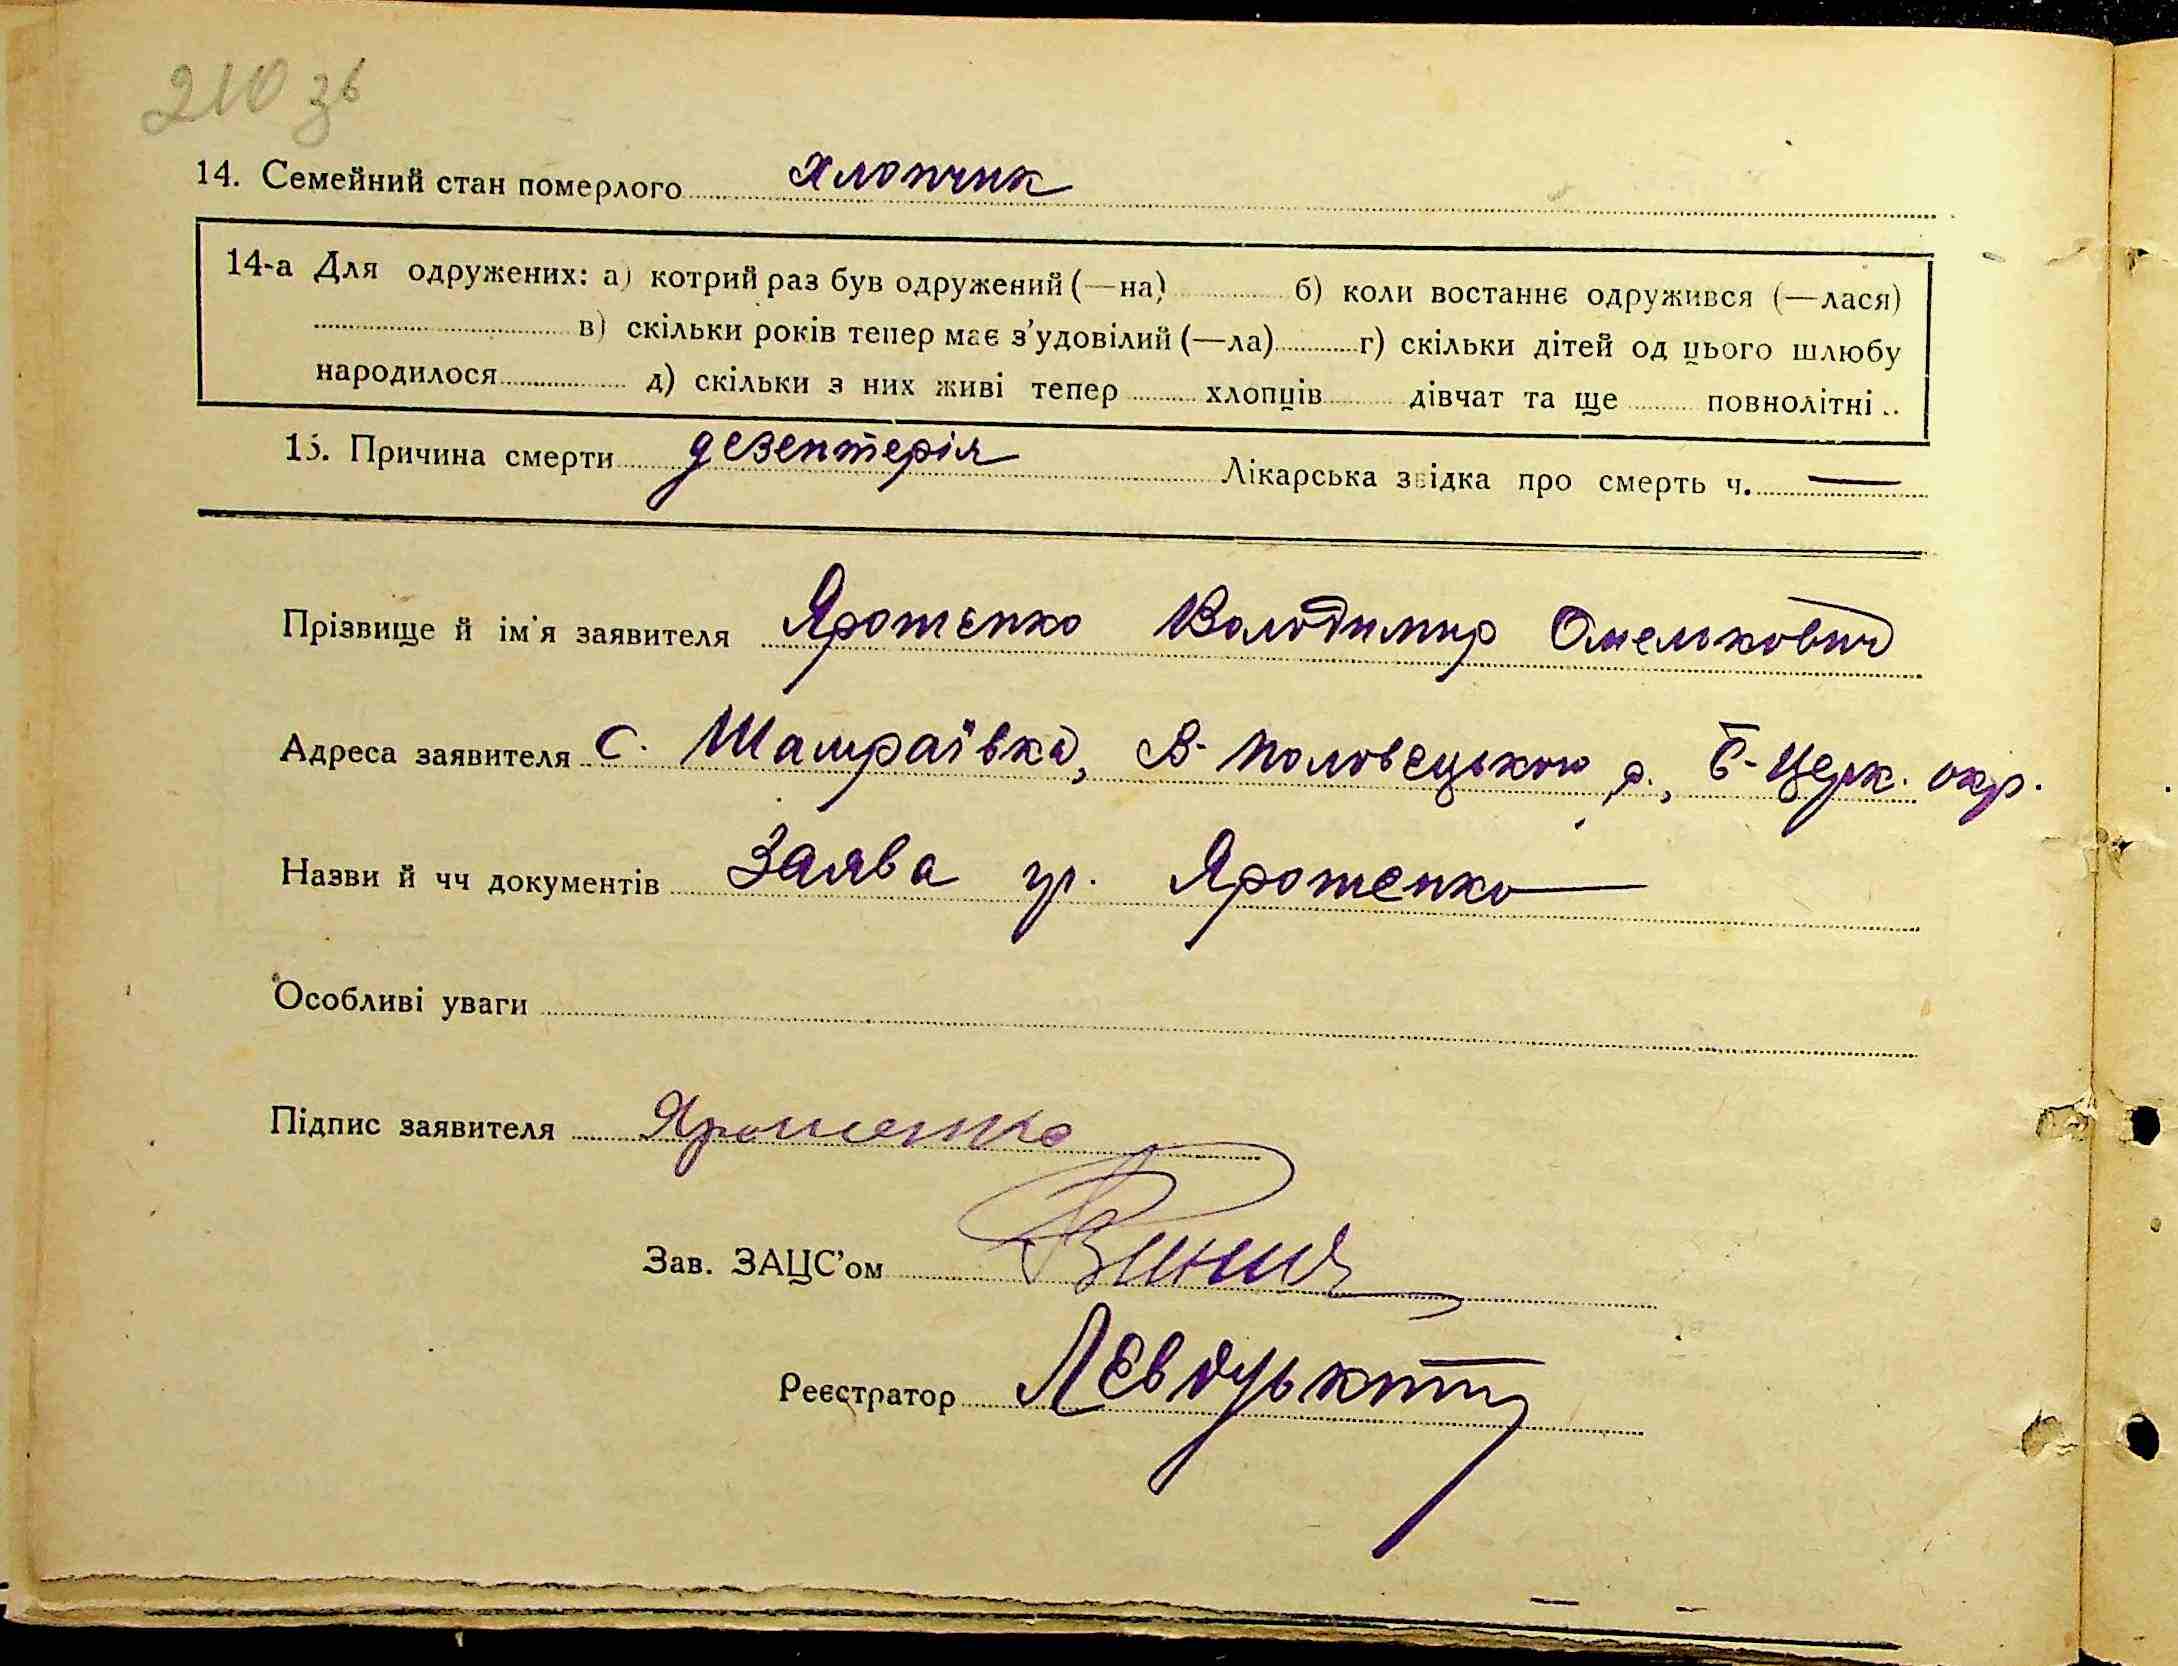 210 зв
14. Семейний стан померлого хлопчик
14-а Для одружених: а) котрий раз був одружений (—на) б) коли востаннє одружився (—лася)
в) скільки років тепер має з'удовілий (—ла) г) скільки дітей од цього шлюбу
народилося д) скільки з них живі тепер хлопців дівчат та ще повнолітні
15. Причина смерти дезентерія Лікарська звідка про смерть ч. —
Прізвище й ім'я заявителя Ярошенко Володимир Омелькович
Адреса заявителя с. Шамраївка, В-Половецького р., Б-Церк. окр.
Назви й чч документів Заява гр. Ярошенко
Особливі уваги
Підпис заявителя Ярошенко
Зав. ЗАЦС'ом
Реєстратор